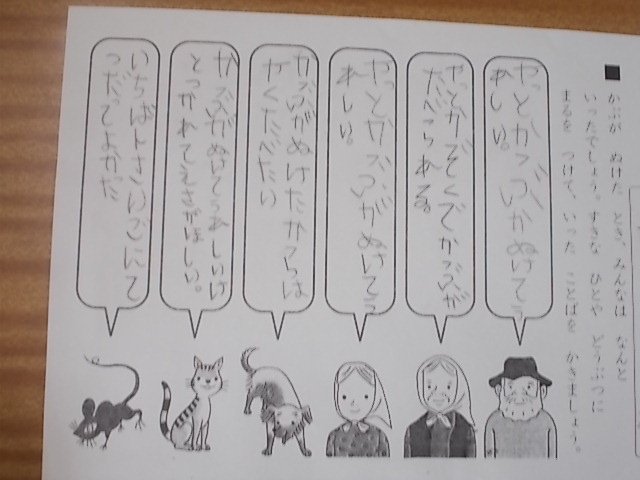 ■ かぶが ぬけた とき、みんなは なんと
いったでしょう。すきな ひとや どうぶつに
まるを つけて、いった ことばを かきましょう。
やっとかぶがぬけてう
れしい。
やっとかぞくでかぶが
たべられる。
やっとかぶがぬけてう
れしい。
かぶがぬけたからは
やくたべたい
かぶがぬけてうれしいけ
どつかれて
いちばん